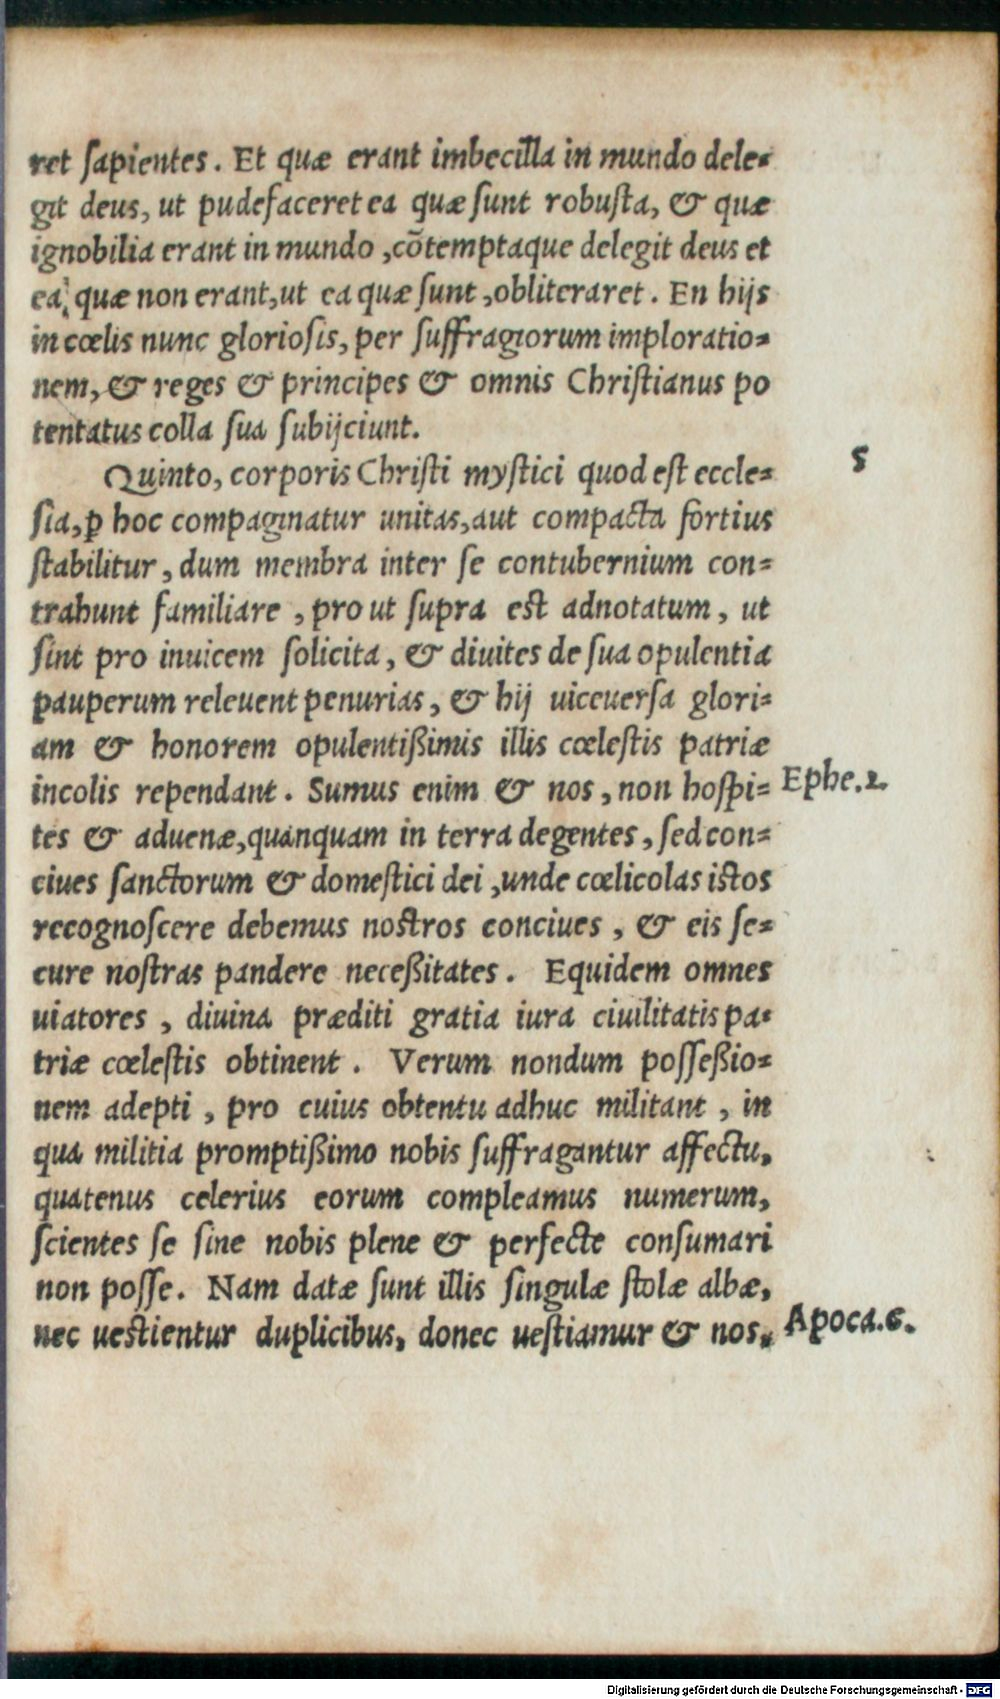 ret ſapientes. Et quæ erant imbecilla in mundo dele⸗
git deus, ut pudefaceret ea quæ ſunt robuſta, & quæ
ignobilia erant in mundo, cõtemptaque delegit deus et
ea, quæ non erant, ut ea quæ ſunt, obliteraret. En hijs
in cœlis nunc glorioſis, per ſuffragiorum imploratio⸗
nem, & reges & principes & omnis Chriſtianus po
tentatus colla ſua ſubijciunt.
Quinto, corporis Chriſti myſtici quod eſt eccle⸗ 5
ſia, ꝑ hoc compaginatur unitas, aut compacta fortius
ſtabilitur, dum membra inter ſe contubernium con⸗
trahunt familiare, pro ut ſupra eſt adnotatum, ut
ſint pro inuicem ſolicita, & diuites de ſua opulentia
pauperum releuent penurias, & hij uiceuerſa glori⸗
am & honorem opulentißimis illis cœleſtis patriæ
incolis rependant. Sumus enim & nos, non hoſpi⸗ Ephe.2.
tes & aduenæ, quanquam in terra degentes, ſed con⸗
ciues ſanctorum & domeſtici dei, unde cœlicolas iſtos
recognoſcere debemus noſtros conciues, & eis ſe⸗
cure noſtras pandere neceßitates. Equidem omnes
uiatores, diuina præditi gratia iura ciuilitatis pa⸗
triæ cœleſtis obtinent. Verum nondum poſſeßio⸗
nem adepti, pro cuius obtentu adhuc militant, in
qua militia promptißimo nobis ſuffragantur affectu,
quatenus celerius eorum compleamus numerum,
ſcientes ſe ſine nobis plene & perfecte conſumari
non poſſe. Nam datæ ſunt illis ſingulæ ſtolæ albæ,
nec ueſtientur duplicibus, donec ueſtiamur & nos. Apoca.6.
Digitalisierung gefördert durch die Deutsche Forschungsgemeinschaft - DFG